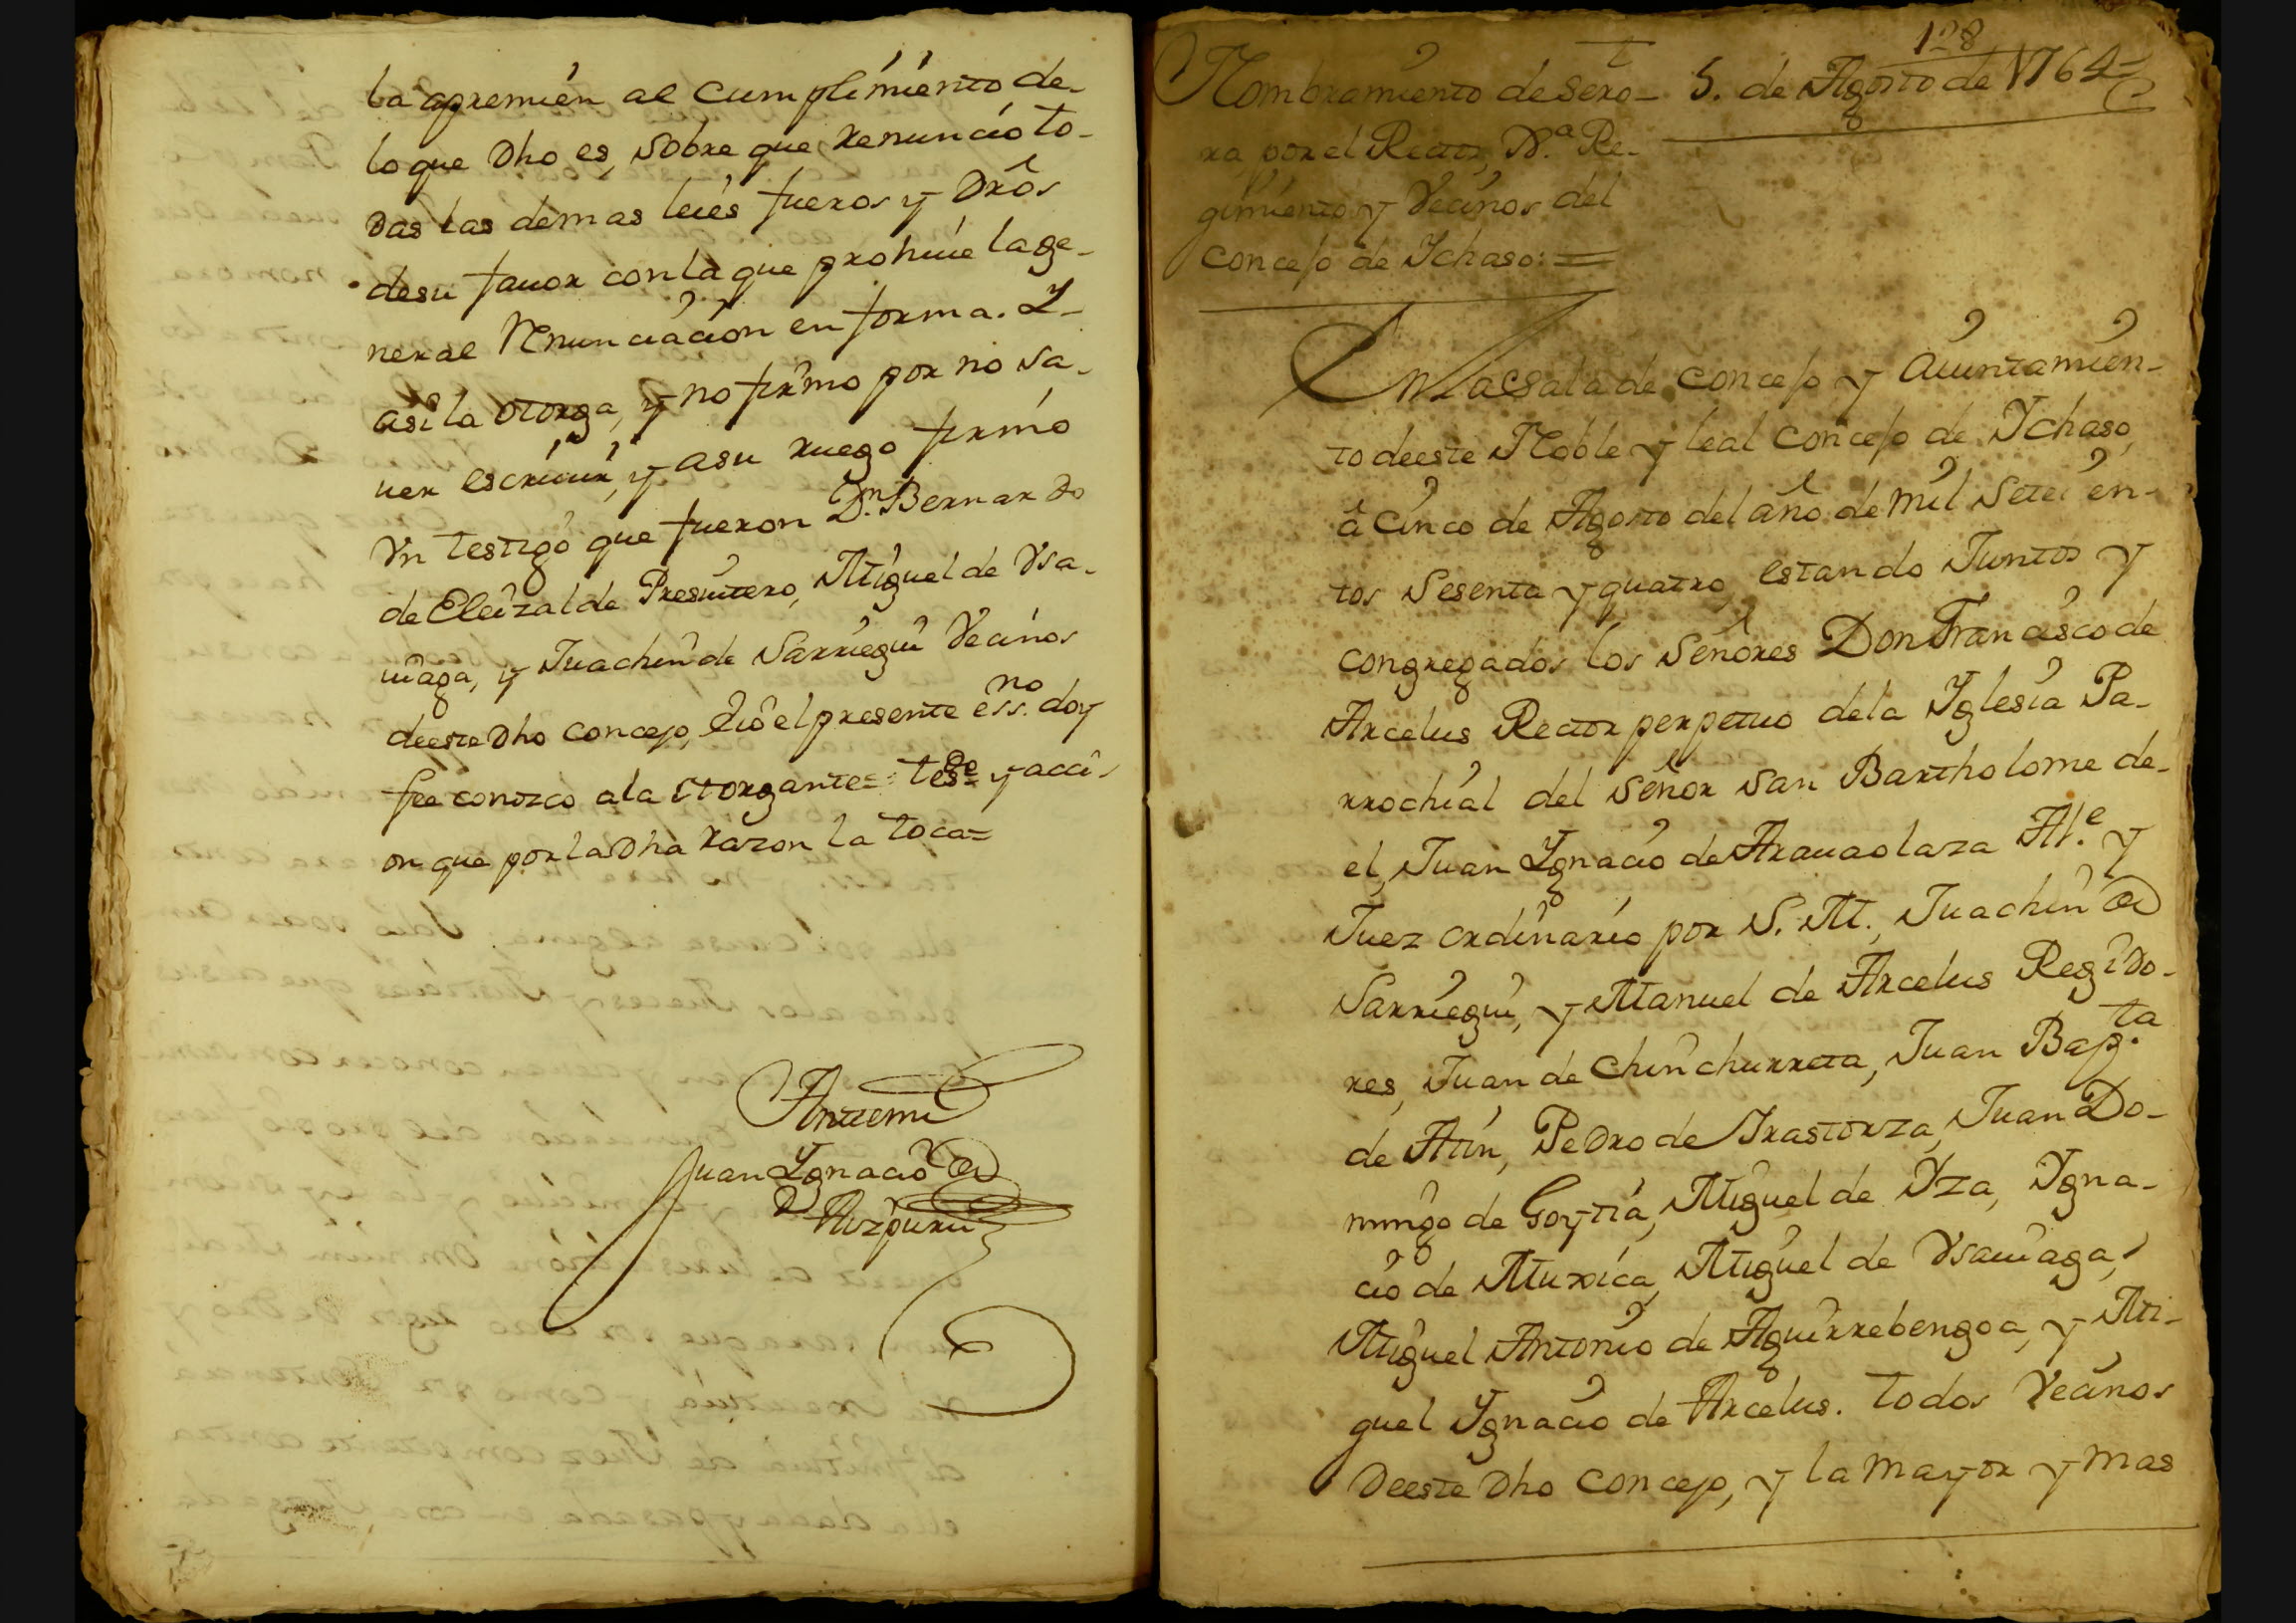 la apremien al cumplimiento de-
lo que Dho es, sobre que renunció to-
das las demas leies fueros y Drôs
de su fauor con la que prohiue la ge-
neral Renunciacion en forma. Y-
asi la otorga, y no firmo por no sa-
uer escriuir, y asu ruego firmó
Vn testigo que fueron Dn. Bernardo
de Eleizalde Presuitero, Miguel de Vsa-
uiaga, y Juachin de Sarriegui Vecinos
deeste Dho concejo, Eió el presente essno. doy
fee conozco ala otorgante= tesgo= y acci-
on que por la Dha razon la toca=
Antemi
Juan Ygnacio de
Aizpuru
128
Nombramiento de sero-
ra, por el Rector, Na. Re-
gimiento y Vecinos del
concejo de Ychaso: =
5. de Agosto de 1764=
En la Sala de concejo y Aiuntamien-
to deeste Noble y leal concejo de Ychaso,
â cinco de Agosto del año de mil setecien-
tos sesenta y quatro, estando Juntos y
congregados los señores Don Francisco de
Arcelus Rector perpetuo dela Yglesia Pa-
rrochial del señor san Bartholome de-
el, Juan Ygnacio de Arauaolaza Ale. y
Juez ordinario por S. M., Juachin de
Sarriegui, y Manuel de Arcelus Regido-
res, Juan de Chinchurreta, Juan Bapta.
de Atín, Pedro de Irastorza, Juan Do-
mingo de Goytia, Miguel de Yza, Ygna-
cio de Muxica, Miguel de Vsauiaga,
Miguel Antonio de Aguirrebengoa, y Mi-
guel Ygnacio de Arcelus. todos Vecinos
Deeste Dho concejo, y la mayor y mas